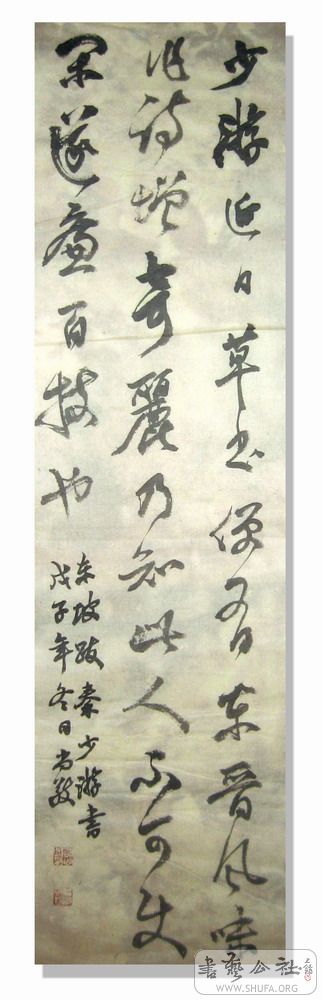 少游近日草书便有东晋风味
作诗增奇丽乃知此人不可使
闲遂兼百技也
东坡跋秦少游书
戊子年冬日尚毅
书艺公社
WWW.SHUFA.ORG